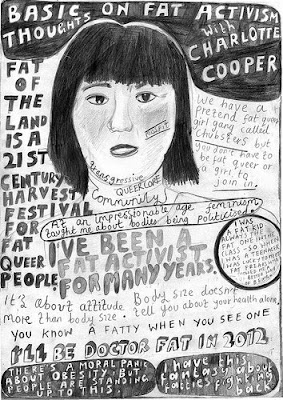 BASIC THOUGHTS ON FAT ACTIVISM
with CHARLOTTE COOPER
FAT
OF
THE
LAND
IS A
21ST
CENTURY
HARVEST
FESTIVAL
FOR
FAT
QUEER
PEOPLE.
We have a
pretend fat queer
girl gang called
Chubsters but
you don't have to
be fat queer or
a girl to
join in.
transgressive
QUEERCORE
Community
At an impressionable age feminism
taught me about bodies being politicised.
I'VE BEEN A
FAT ACTIVIST
FOR MANY YEARS.
I WAS
A FAT KID
It's about attitude
more than body size.
Body size doesn't
tell you about your health alone.
YOU KNOW A FATTY WHEN YOU SEE ONE
I'LL BE DOCTOR FAT IN 2012
THERE'S A MORAL PANIC
ABOUT OBESITY, BUT
PEOPLE ARE STANDING
UP TO THIS.
I have this
fantasy about
fatties fighting
back